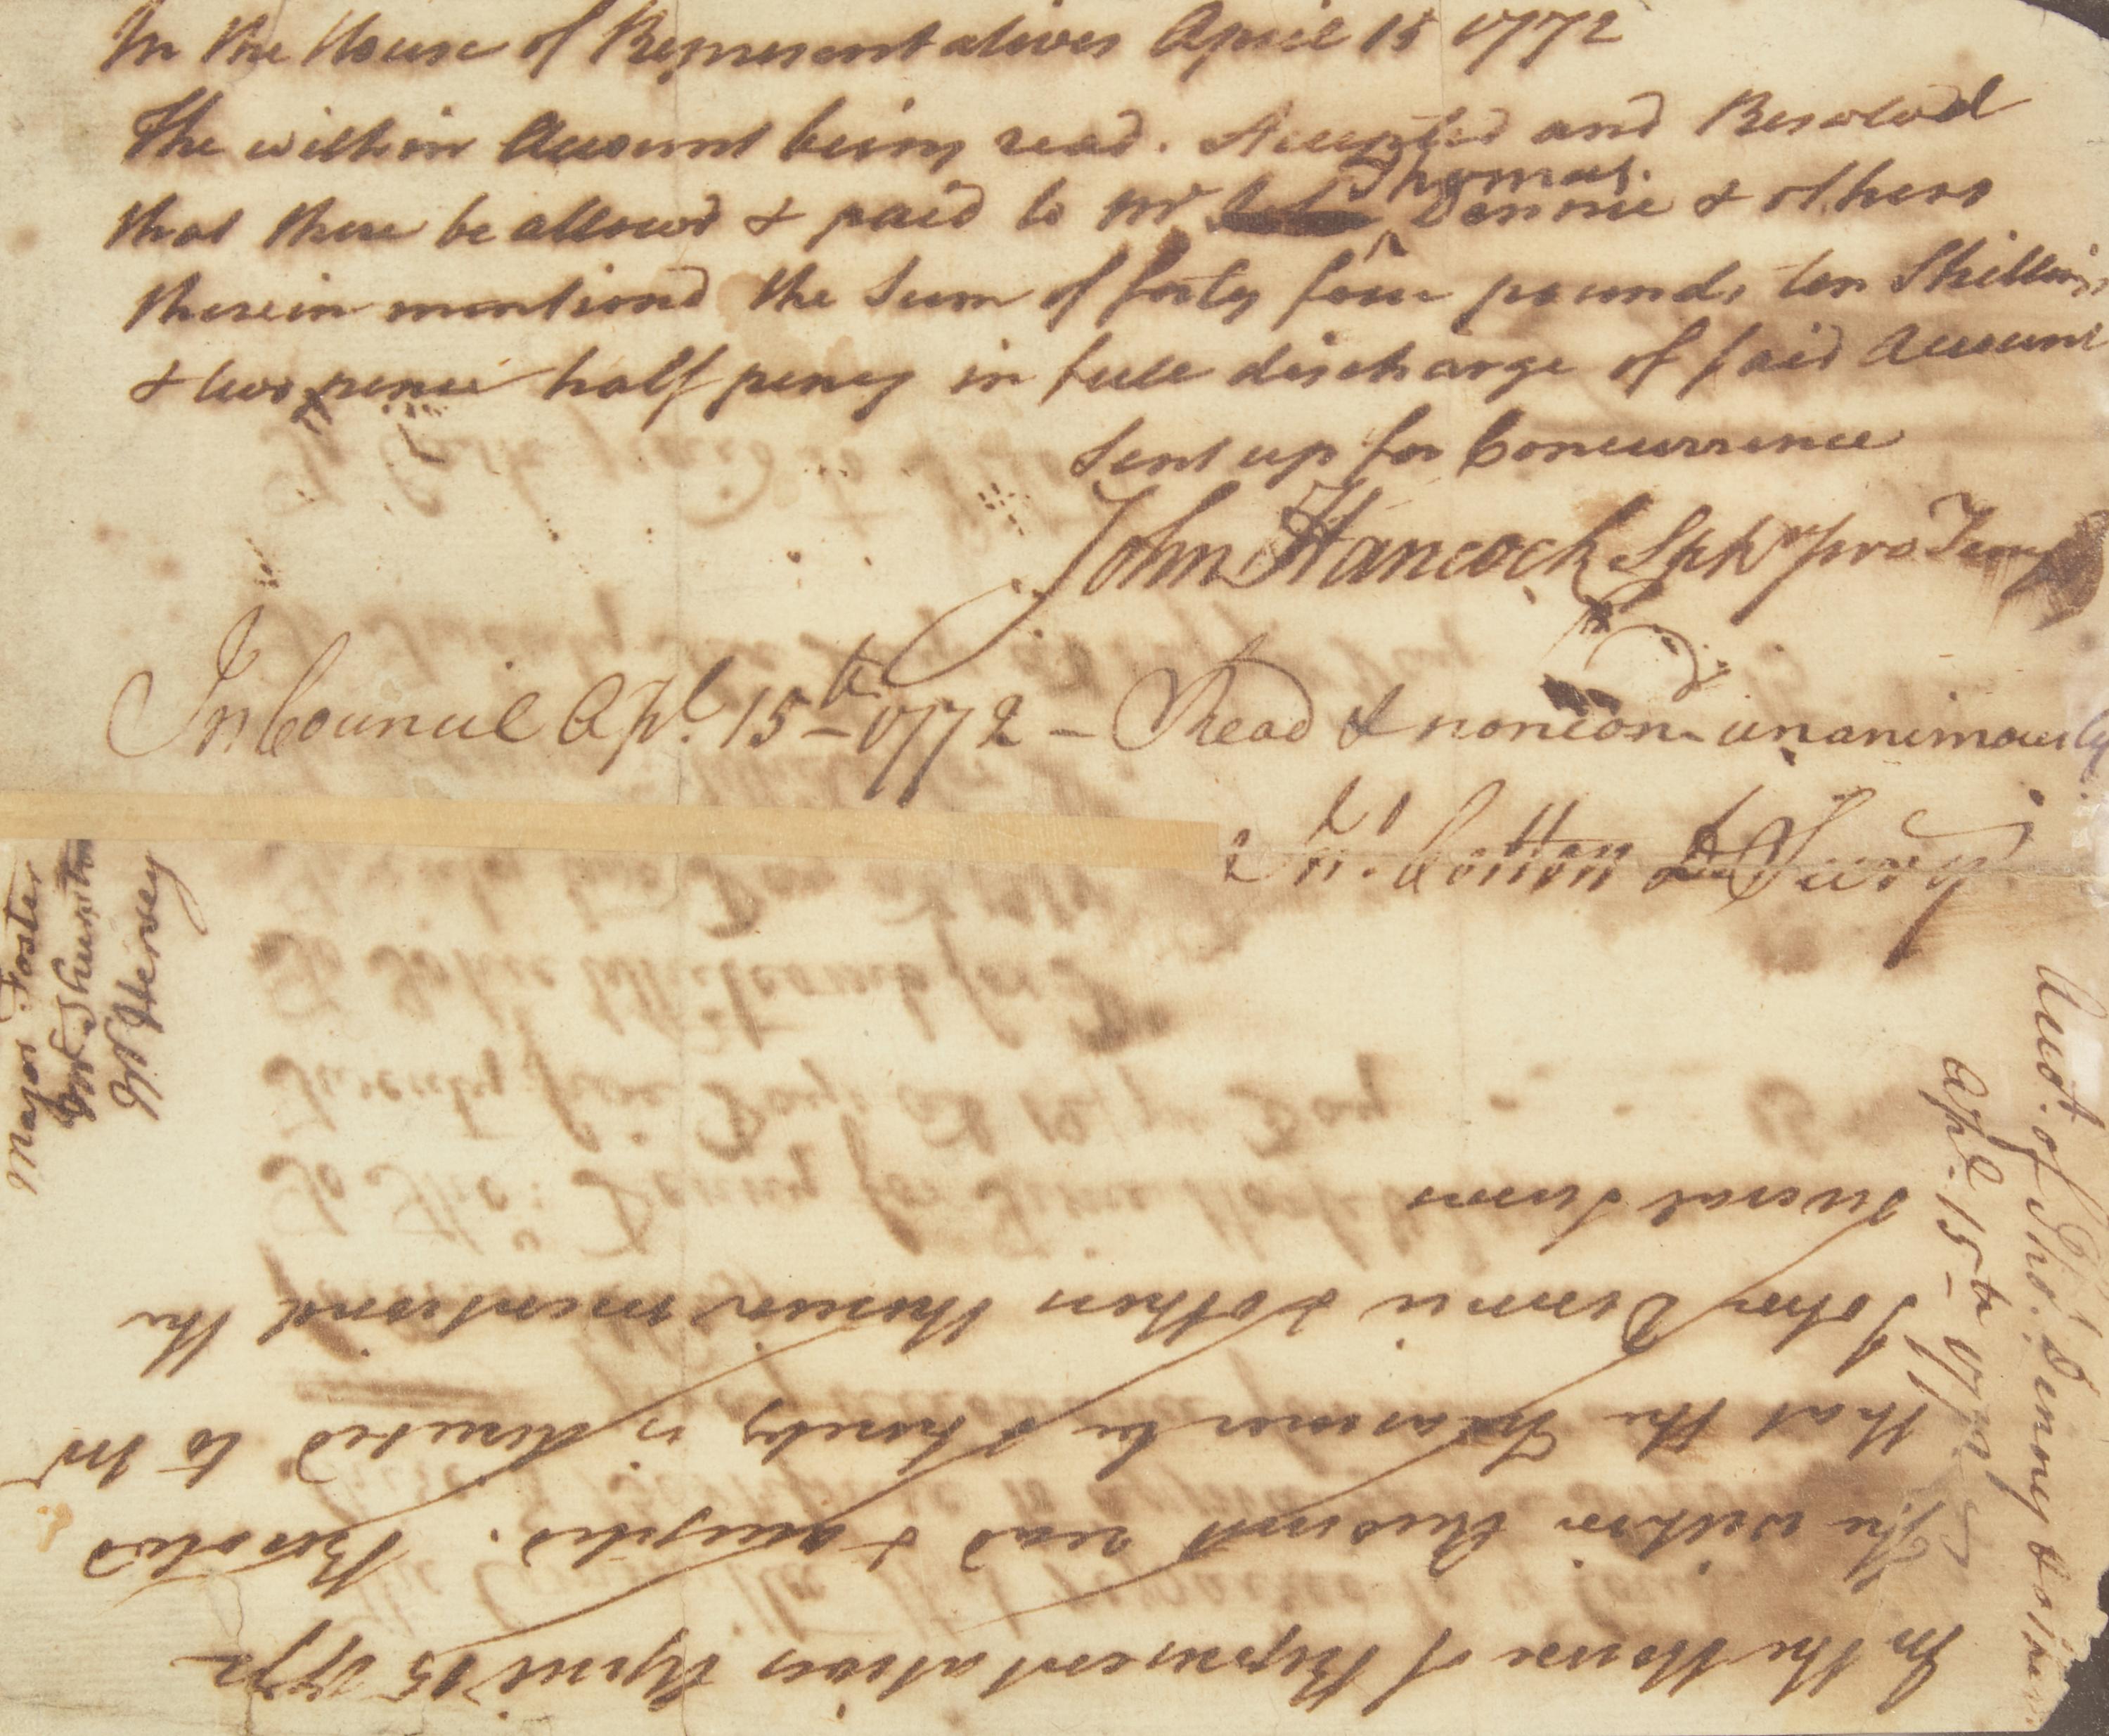 In the House of Representatives April 15 1772
The within Account being read. Accepted and Resolved
that there be allowd & paid to Mr Thomas Dennie & others
therein mentiond the Sum of forty four pounds ten Shillings
& two pence half peny in full discharge of said Account
Sent up for Concurrence
John Hancock Spkr pro Temp
In Council Apl. 15th 1772 - Read & noncon unanimously
Jn. Cotton D Secry
Major Foster
Mr Thurston
Mr Hersey
Acct. of Tho. Denny & others
Apl. 15th 1772
In the House of Representatives April 15 1772
The within Account read & accepted. Resolved
that the Treasurer be & hereby is directed to Mr
John Dennie & others therein mentiond the
several sums